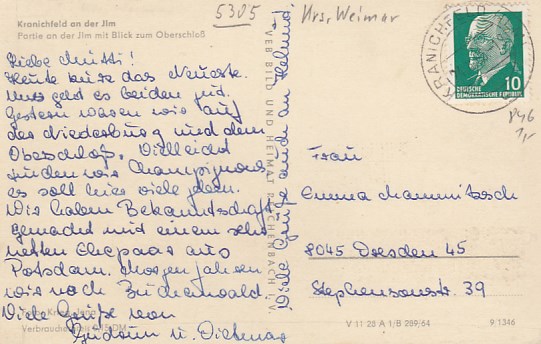 Kranichfeld an der Jlm
Partie an der Jlm mit Blick zum Oberschloß
5305 Krs. Weimar
KRANICHFELD
10
DEUTSCHE DEMOKRATISCHE REPUBLIK
Liebe Mutti!
Heute kurz das Neueste.
Uns geht es beiden gut.
Gestern waren wir auf
der Niederburg und dem
Oberschloß. Vielleicht
finden wir Champignons
es soll hier viele geben.
Wir haben Bekanntschaft
gemacht mit einem sehr
netten Ehepaar aus
Potsdam. Morgen fahren
wir nach Buchenwald.
Viele Grüße von
Gudrun u. Dietmar
Viele Grüße auch an Helmut!
VEB BILD UND HEIMAT REICHENBACH i. V.
Frau
Emma Mammitzsch
8045 Dresden 45
Stephensonstr. 39
Verbraucherpreis DM
V 11 28 A 1/B 289/64
9 1346